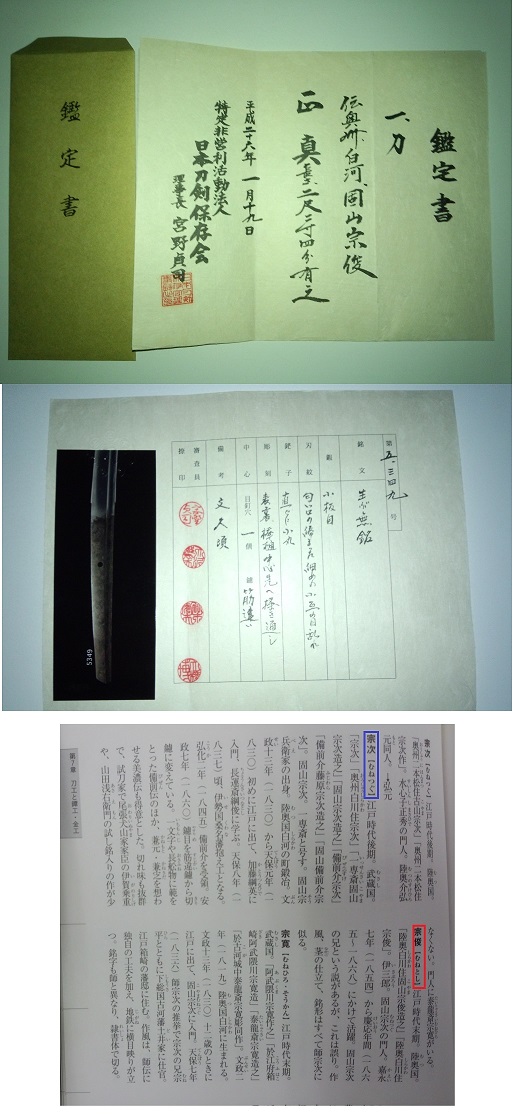 鑑定書
鑑定書
一、刀
伝奥州白河固山宗俊
正真 長サ二尺三寸四分有之
平成二十六年一月十九日
特定非営利活動法人
日本刀剣保存会
理事長 宮野貞司
第五、三四九号
銘文 生ぶ無銘
鍛 小板目
刃紋 匂い口の締まる細かい小互の目乱れ
鋩子 直ぐに小丸
彫刻 表裏棒樋中心先へ掻き通し
中心 目釘穴 一個 鑢 筋違い
備考 文久頃
審査員
押印
5349
宗次【むねつぐ】江戸時代後期。陸奥国。
「奥州二本松住古山宗次」「奥州二本松住
宗次作」。水心子正秀の門人。陸奥介弘
元同人。→弘元
宗次【むねつぐ】江戸時代後期。武蔵国。
「宗次」「奥州白川住宗次」「一専斎固山
宗次造之」「固山宗次」「備前介宗次」
「備前介藤原宗次造之」「固山備前介宗
次」。固山宗次。一専斎と号す。固山宗
兵衛家の出身。陸奥国白河の町鍛冶。文
政十三年（一八三〇）から天保元年（一
八三〇）初めに江戸に出て、加藤綱英に
入門、長運斎綱俊に学ぶ。天保八年（一
八三七）頃、伊勢国桑名藩抱え工となる。
弘化二年（一八四五）備前介を受領。安
政七年（一八六〇）鑢目を筋違鑢から切
鑢に変えている。丁文字や互の目に範を
とった備前伝のほか、兼元、兼定を想わ
せる美濃伝も得意とした。切れ味も抜群
で、試刀家で尾張犬山家家臣の伊賀乗重
や、山田浅右衛門の試し銘入りの作が少
なくない。門人に泰龍斎宗寛がいる。
宗俊【むねとし】江戸時代末期。陸奥国。
「陸奥白川住固山宗俊造之」「陸奥白川住
宗俊」。伊三郎。固山宗次の門人。嘉永
七年（一八五四）から慶応年間（一八六
五～一八六八）にかけて活躍。固山宗次
の兄という説があるが、これは誤り。作
風、茎の仕立て、銘形はすべて師宗次に
似る。
宗寛【むねひろ・そうかん】江戸時代末期。
武蔵国。「阿武隈川宗寛作之」「於江府箱
崎阿武隈川宗寛造」「泰龍斎宗寛造之」
「於古河城中泰龍斎宗寛彫同作」。文政二
年（一八一九）陸奥国白河に生まれる。
文政十三年（一八三〇）十二歳のときに
江戸に出て、固山宗次に入門。天保七年
（一八三六）師宗次の推挙で宗次の兄宗
平とともに下総国古河藩土井家に住官。
江戸箱崎の藩邸に住む。作風は、師伝に
独自の工夫を加え、地鉄に横目映りが立
つ。銘字も師と異なり、隷書体で切る。
第7章 刀工と鐔工・金工